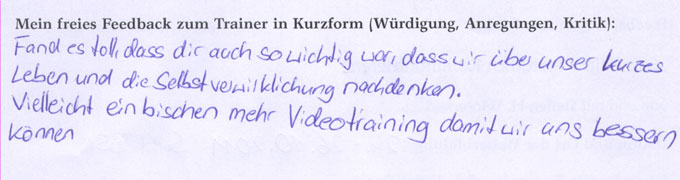 Mein freies Feedback zum Trainer in Kurzform (Würdigung, Anregungen, Kritik):
Fand es toll, dass dir auch so wichtig war, dass wir über unser kurzes
Leben und die Selbstverwirklichung nachdenken.
Vielleicht ein bischen mehr Videotraining damit wir uns bessern
können